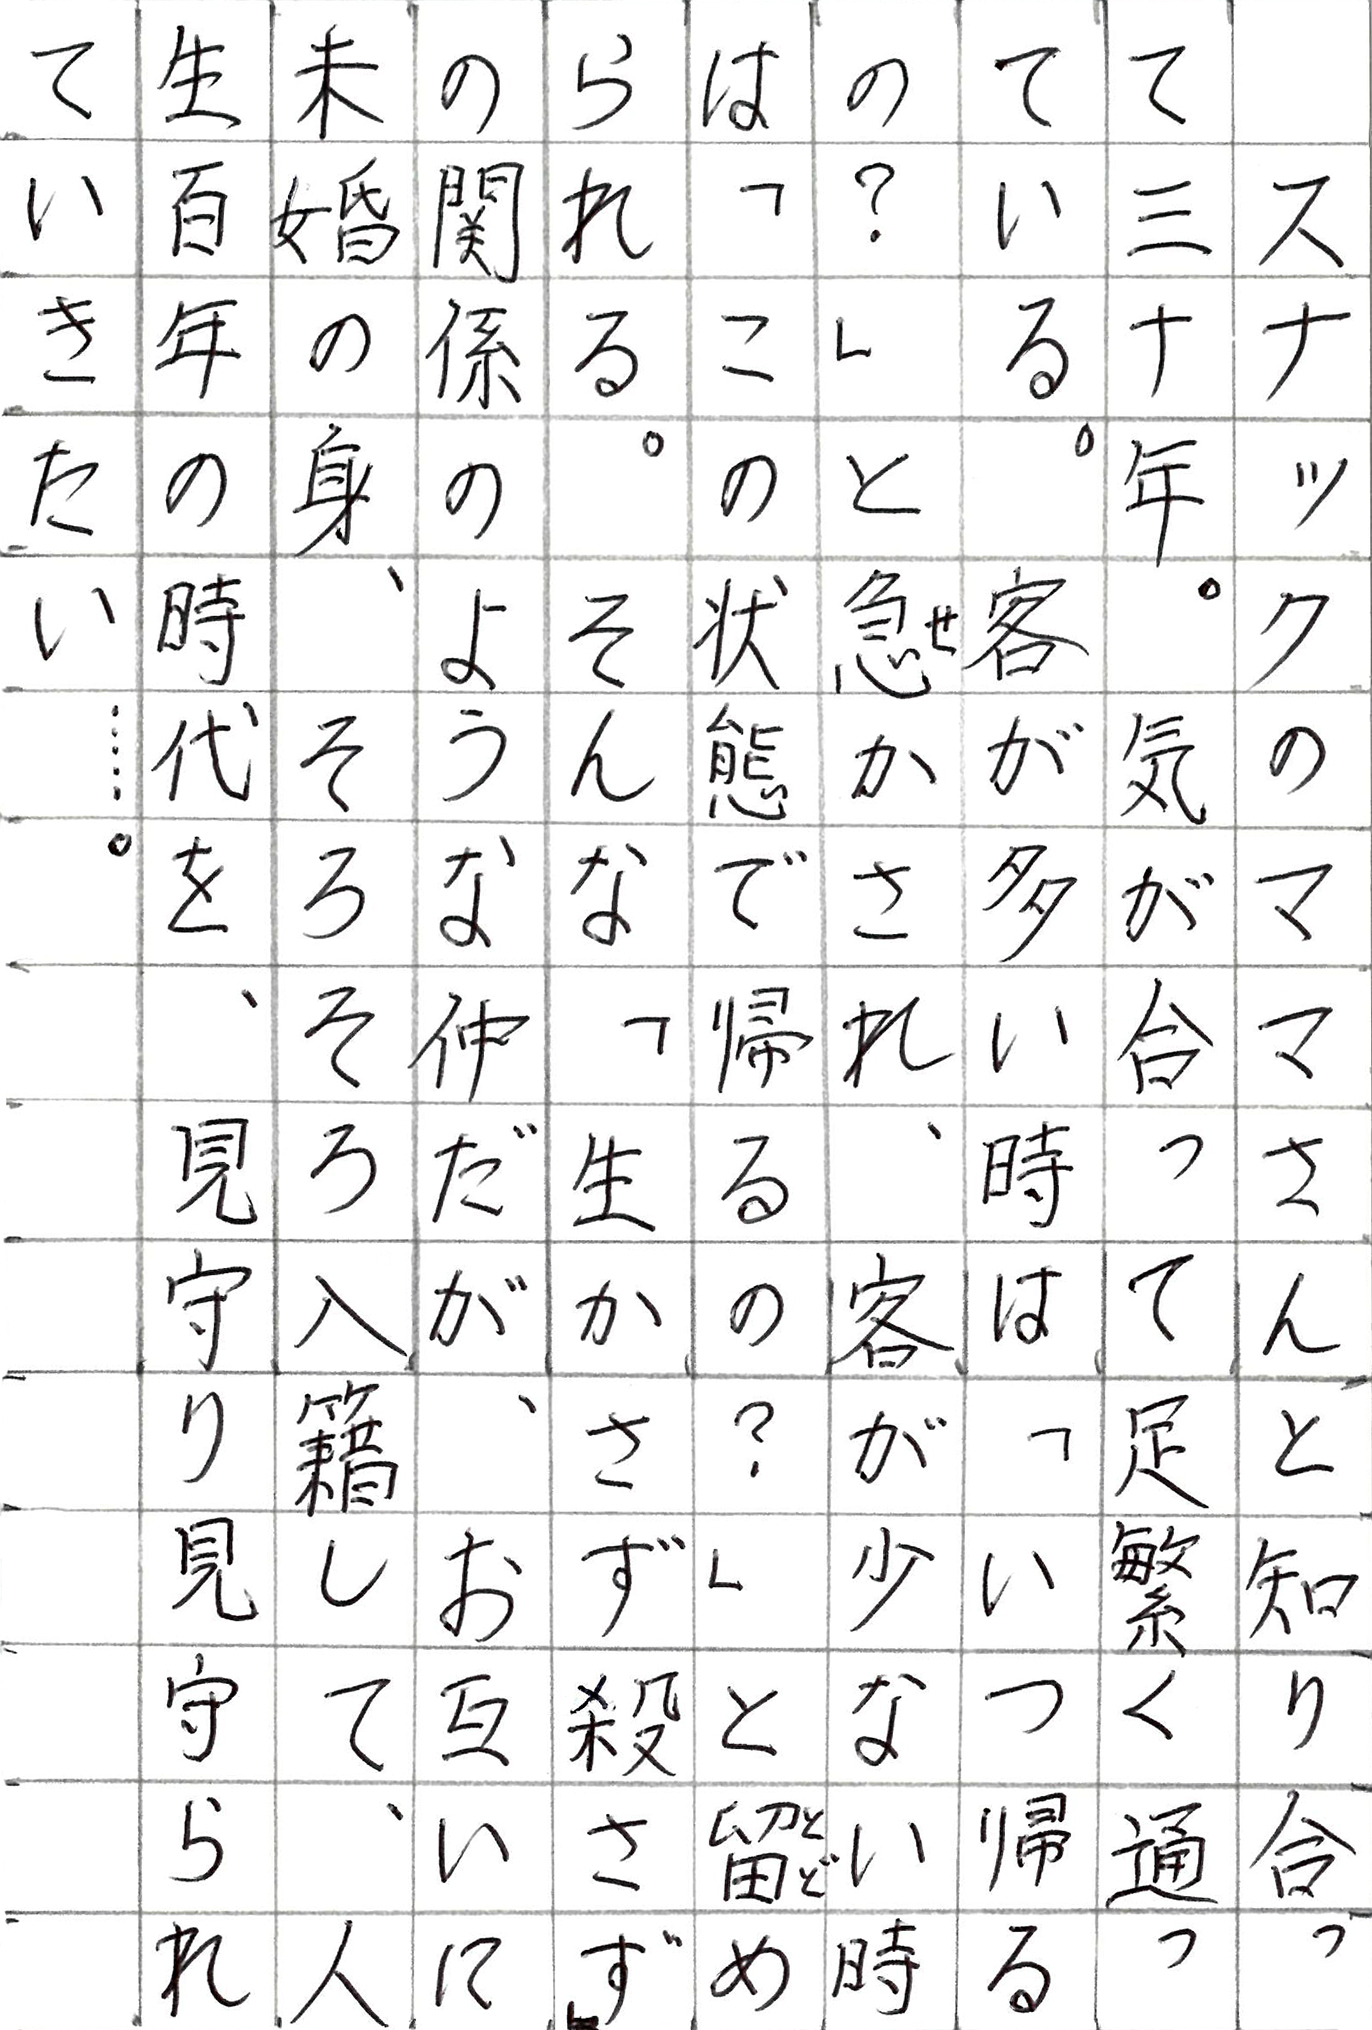 スナックのママさんと知り合っ
て三十年。気が合って足繁く通っ
ている。客が多い時は「いつ帰る
の？」と急かされ、客が少ない時
は「この状態で帰るの？」と留め
られる。そんな「生かさず殺さず」
の関係のような仲だが、お互いに
未婚の身、そろそろ入籍して、人
生百年の時代を、見守り見守られ
ていきたい……。
せ
とど